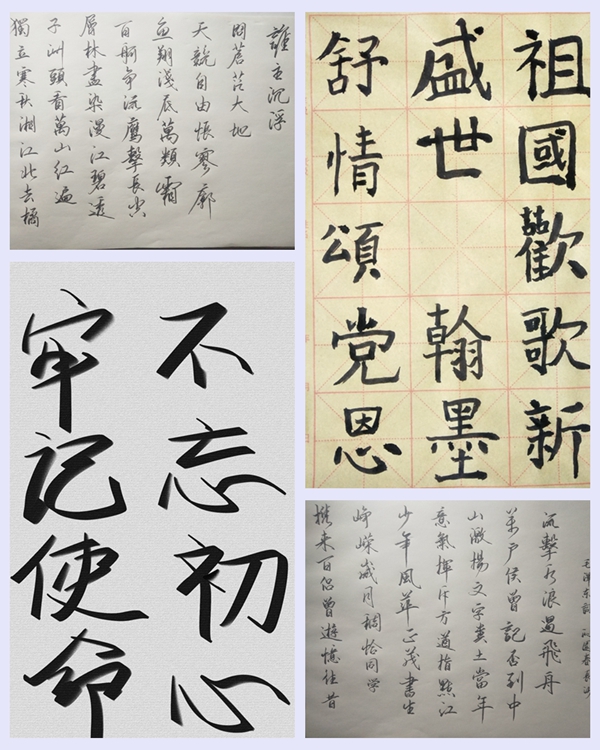 獨立寒秋湘江北去橘
子洲頭看萬山紅遍
層林盡染漫江碧透
百舸爭流鷹擊長空
魚翔淺底萬類霜
天競自由悵寥廓
問蒼茫大地
誰主沉浮
祖國歡歌新
盛世翰墨
舒情頌党恩
不忘初心
牢记使命
攜來百侶曾遊憶往昔
崢嶸歲月稠恰同學
少年風華正茂書生
意氣揮斥方遒指點江
山激揚文字糞土當年
萬戶侯曾記否到中
流擊水浪遏飛舟
毛澤東詞沁園春長沙